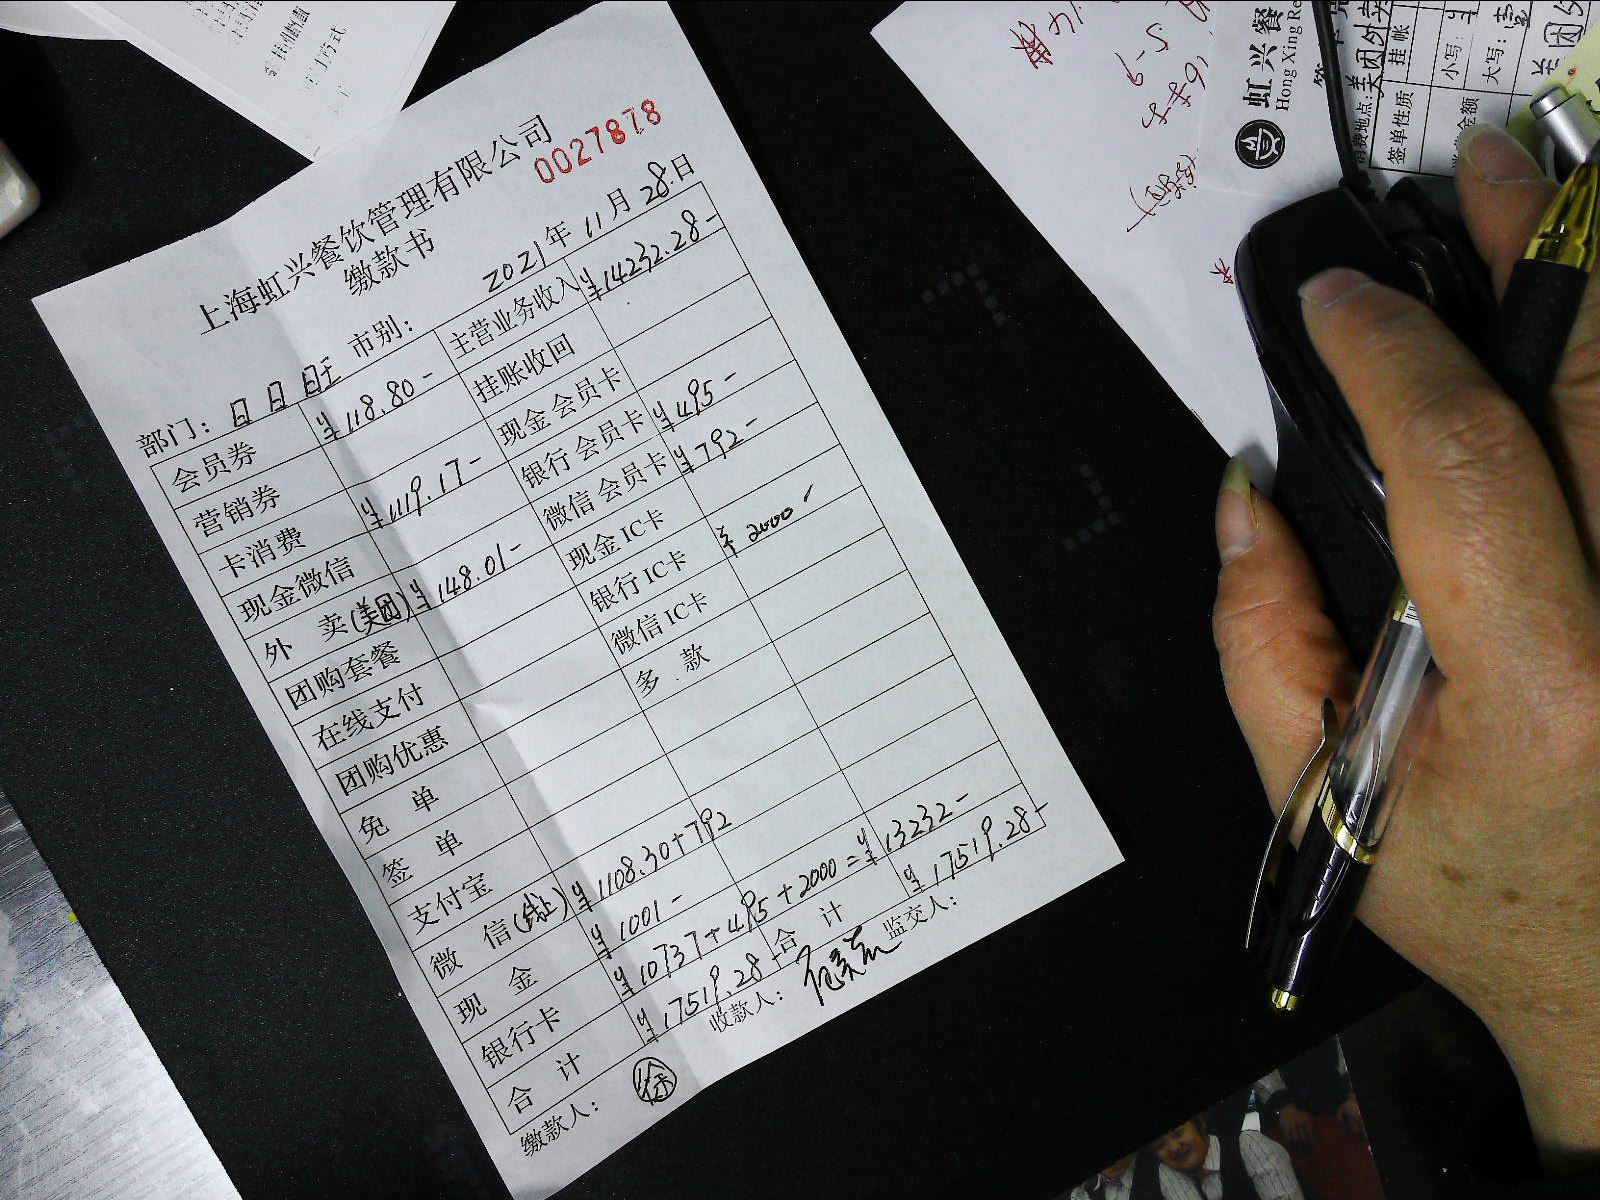 上海虹兴餐饮管理有限公司
0027878
缴款书
2021年 11月 28日
部门: 日日日上 市别:
会员券 ¥118.80- 主营业务收入 ¥14232.28-
营销券 挂账收回
卡消费 ¥1119.17- 现金会员卡
现金微信 银行会员卡 ¥495-
外 卖(美团) ¥148.01- 微信会员卡 ¥792-
团购套餐 现金IC卡
在线支付 银行IC卡 ¥2000-
团购优惠 微信IC卡
免 单 多 款
签 单
支付宝
微 信 ¥1108.30+792
现 金 ¥1001-
银行卡 ¥10737+495+2000=¥13232-
合 计 ¥17519.28- 合 计 ¥17519.28-
缴款人: 徐 收款人: 监交人:
虹兴餐
Hong Xing Re
消费地点: 美团外卖
签单性质 挂 帐
小写:
大写: 壹
美团外